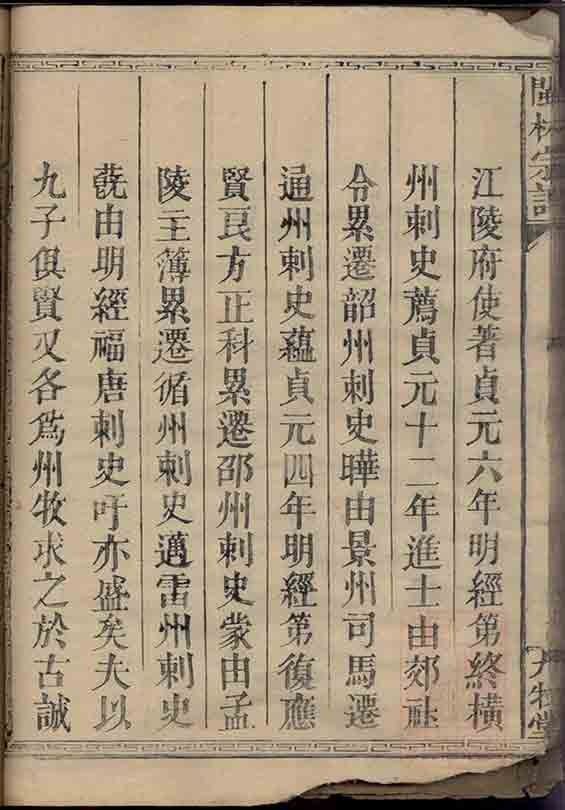 閩林宗譜
九牧堂
江陵府使著貞元六年明經第終橫
州刺史薦貞元十二年進士由郊社
令累遷韶州刺史曄由景州司馬遷
通州刺史蘊貞元四年明經第復應
賢良方正科累遷邵州刺史蒙由孟
陵主簿累遷循州刺史邁雷州刺史
蔇由明經福唐刺史吁亦盛矣夫以
九子俱賢又各爲州牧求之於古誠